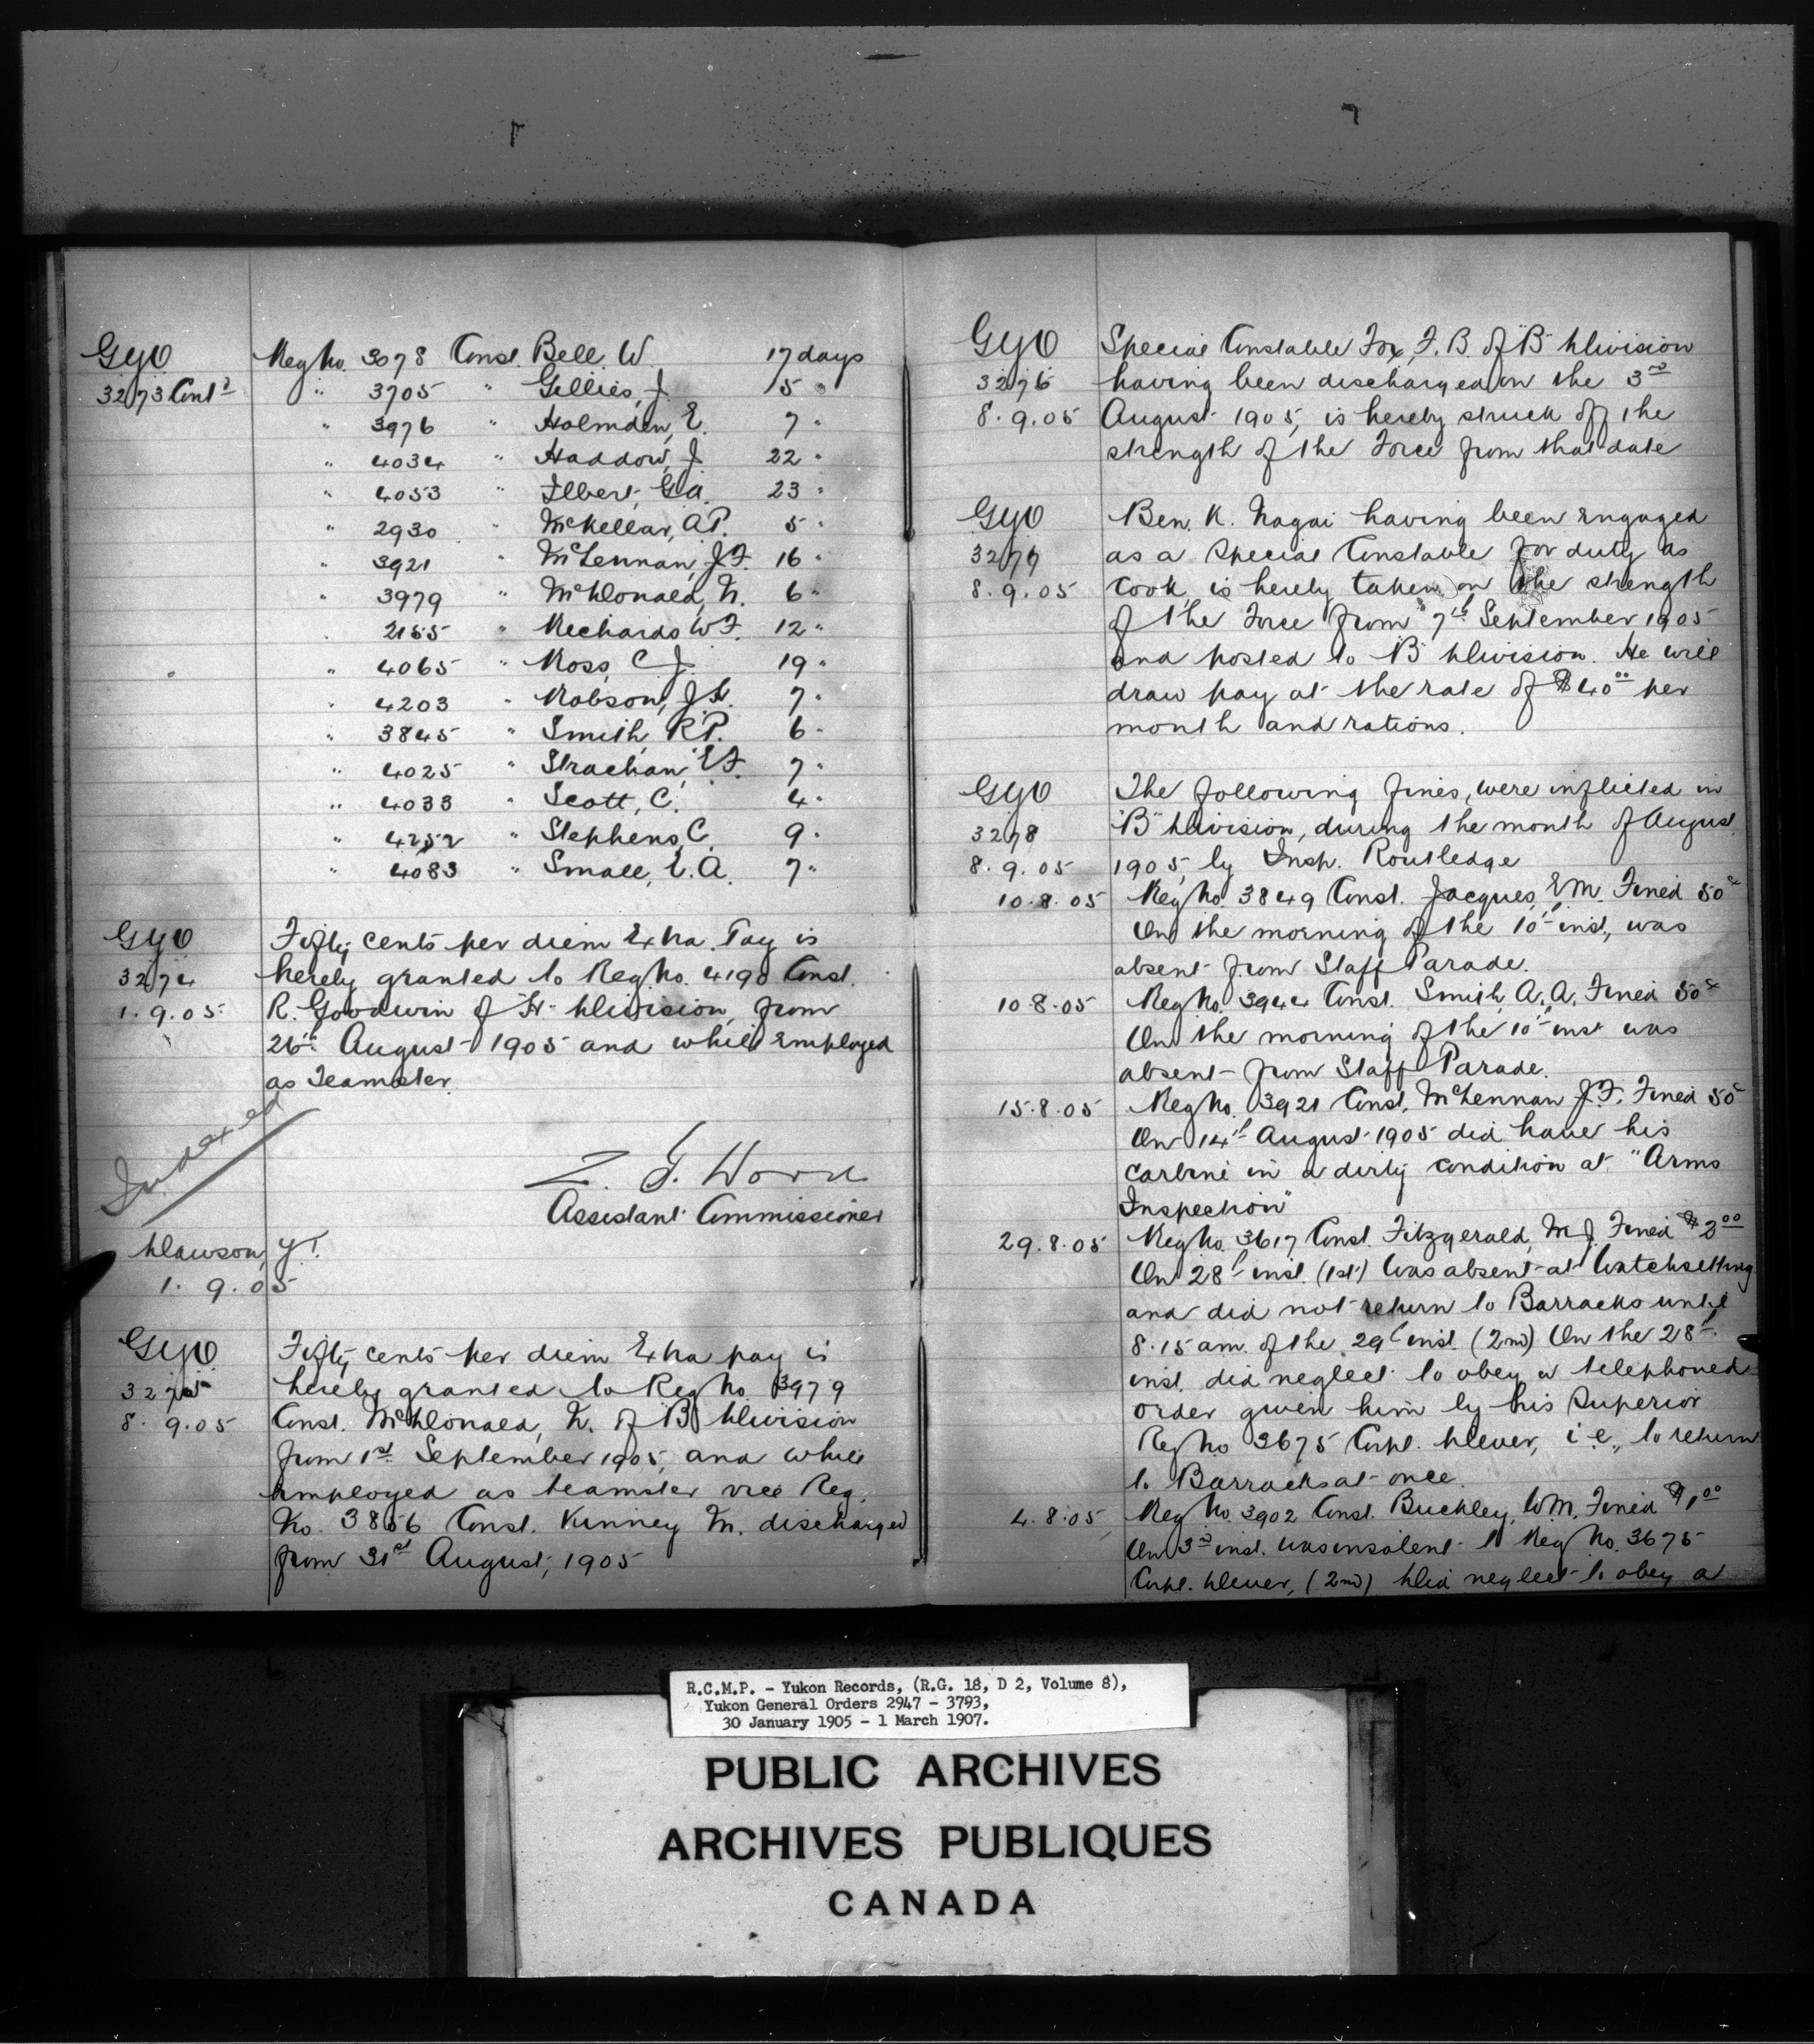 GYO Reg No. 3078 Const. Bell, W. 17 days
3273 Cont'd " 3705 " Gillies, J. 5 "
" 3976 " Holmden, E. 7 "
" 4034 " Haddow, J. 22 "
" 4053 " Ilbert, G.A. 23 "
" 2930 " McKellar, A.P. 5 "
" 3921 " McLennan, J.F. 16 "
" 3979 " McDonald, N. 6 "
2155 " Richards W.F. 12 "
" 4065 " Ross, C.J. 19 "
" 4203 " Robson, J.H. 7 "
" 3845 " Smith, R.P. 6 "
" 4025 " Strachan, E.F. 7 "
" 4033 " Scott, C. 4 "
" 4252 " Stephens, C. 9 "
" 4083 " Small, E.A. 7 "
GYO Fifty cents per diem Extra Pay is
3274 hereby granted to Reg. No. 4190 Const.
1.9.05 R. Goodwin of "H" Division, from
26th August 1905 and while employed
as Teamster.
Indexed
Z. T. Wood
Assistant Commissioner
Dawson, Y.T.
1. 9. 05
GYO Fifty cents per diem Extra pay is
3275 hereby granted to Reg No. 3979
8. 9. 05 Const. McDonald, N. of "B" Division
from 1st September 1905, and while
employed as teamster vice Reg.
No. 3856 Const. Kinney M. discharged
from 31st August, 1905
GYO Special Constable Fox, F. B. of "B" Division
3276 having been discharged on the 3rd
8. 9. 05 August 1905, is hereby struck off the
strength of the Force from that date
GYO Ben. K. Nagai having been engaged
3277 as a Special Constable for duty as
8. 9. 05 cook, is hereby taken on the strength
of the Force from 7th September 1905
and posted to "B" Division. He will
draw pay at the rate of $40.00 per
month and rations.
GYO The following fines, were inflicted in
3278 "B" Division, during the month of August
8. 9. 05 1905, by Insp. Routledge
10.8.05 Reg No. 3849 Const. Jacques, E.M. Fined 50c
On the morning of the 10th inst, was
absent from Staff Parade.
10.8.05 Reg No. 3944 Const. Smith, A.A. Fined 50c
On the morning of the 10th inst was
absent from Staff Parade.
15.8.05 Reg No. 3921 Const. McLennan J.F. Fined 50c
On 14th August 1905 did have his
carbine in a dirty condition at "Arms
Inspection"
29.8.05 Reg No. 3617 Const. Fitzgerald, M.J. Fined $3.00
On 28th inst. (1st) Was absent at Watchsetting
and did not return to Barracks until
8.15 am. of the 29th inst. (2nd) On the 28th
inst. did neglect to obey a telephoned
order given him by his Superior
Reg No 3675 Corpl. Dever, i.e., to return
to Barracks at once.
4.8.05 Reg No. 3902 Const. Buckley, W.M. Fined $1.00
On 3rd inst. was insolent to Reg No. 3675
Corpl. Dever, (2nd) Did neglect to obey a
R.C.M.P. - Yukon Records, (R.G. 18, D 2, Volume 8),
Yukon General Orders 2947 - 3793,
30 January 1905 - 1 March 1907.
PUBLIC ARCHIVES
ARCHIVES PUBLIQUES
CANADA